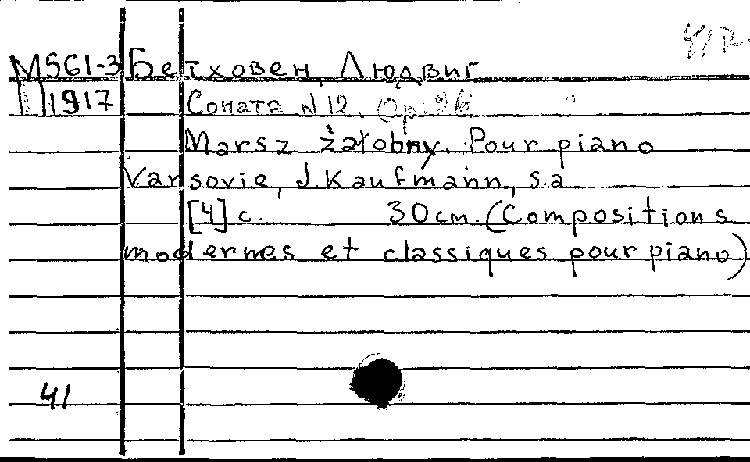 М561-3 Бетховен, Людвиг
Д1917 Соната N12. Op. 26
Marsz żałobny. Pour piano
Varsovie, J. Kaufmann, s.a
[4] с. 30 cm. (Compositions
modernes et classiques pour piano)
41